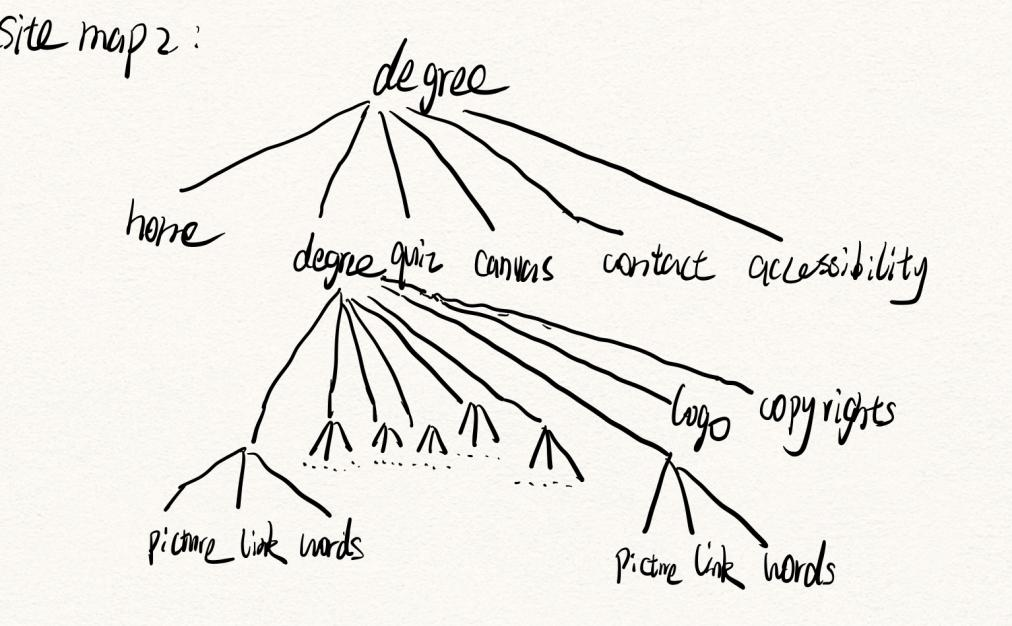 Site map 2:
degree
home
degree quiz canvas contact accessibility
logo copyrights
picture link words
picture link words